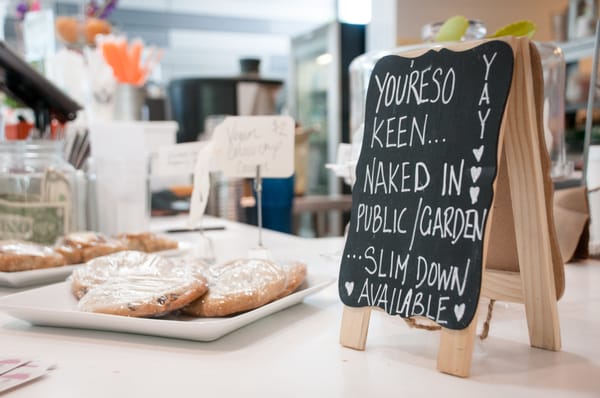 YOU'RE SO
KEEN...
NAKED IN
PUBLIC / GARDEN
...SLIM DOWN
AVAILABLE
YAY
Vegan $2